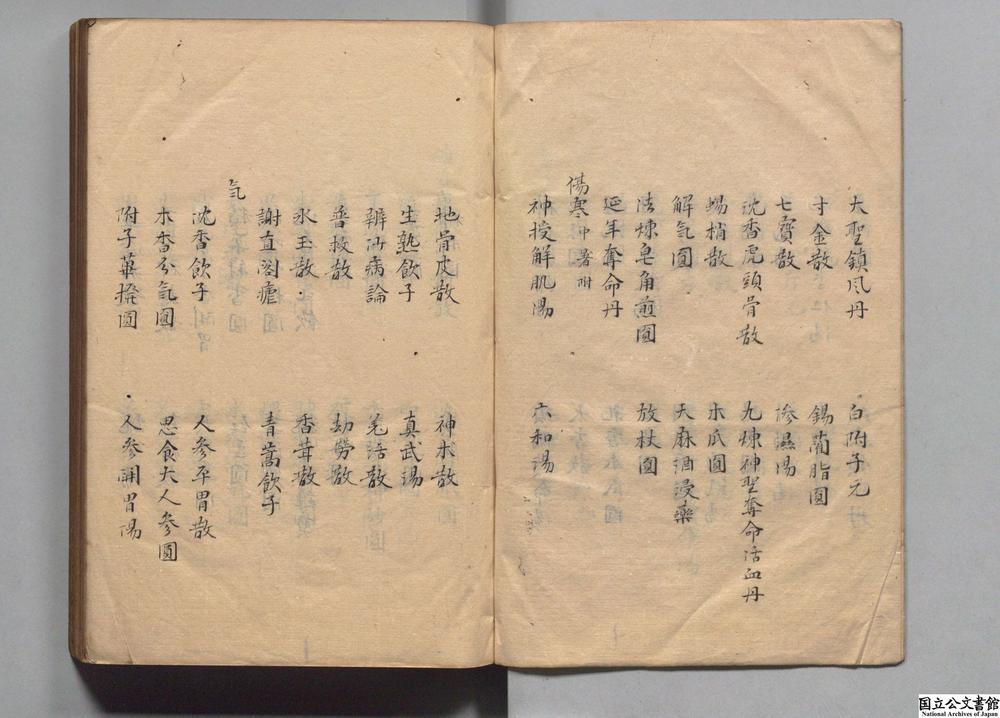 大聖鎮风丹　白附子元
寸金散　錫藺脂圓
七寶散　滲濕湯
沈香虎頭骨散　九煉神聖奪命活血丹
蝎梢散　木瓜圓
解気圓　天麻酒浸藥
法煉皂角煎圓　放杖圓
延年奪命丹
傷寒 中暑附
神授解肌湯　六和湯
地骨皮散　神朮散
生熟飲子　真武湯
辨沙病論　羌活散
普救散　劫勞散
氷玉散　香茸散
謝直閣瘧　青蒿飲子
気
沈香飲子　人参平胃散
木香分気圓　思食大人参圓
附子蓽撥圓　人参開胃湯
国立公文書館
National Archives of Japan